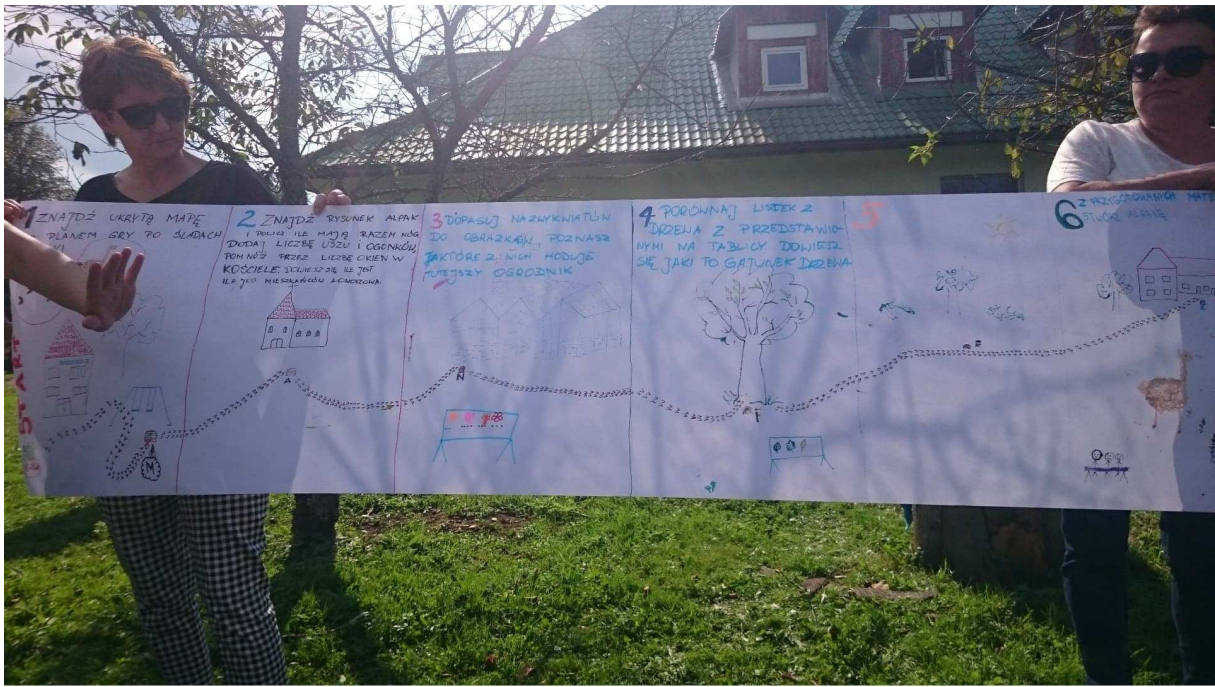 START
1 ZNAJDŹ UKRYTĄ MAPĘ
PLANEM GRY PO ŚLADACH
M
2 ZNAJDŹ RYSUNEK ALPAK
I POLICZ ILE MAJĄ RAZEM NÓG
DODAJ LICZBĘ USZU I OGONKÓW,
POMNÓŻ PRZEZ LICZBĘ OKIEN W
KOŚCIELE, DOWIESZ SIĘ ILE JEST
ILE JEST MIESZKAŃCÓW
A
3 DOPASUJ NAZWY KWIATÓW
DO OBRAZKÓW, POZNASZ
KTÓRE Z NICH HODUJE
TUTEJSZY OGRODNIK
N
4 PORÓWNAJ LISTEK Z
DRZEWA Z PRZEDSTAWIO-
NYMI NA TABLICY DOWIESZ
SIĘ JAKI TO GATUNEK DRZEWA
5
6 Z PRZYGOTOWANYCH MATE
STWÓRZ ALPAKĘ